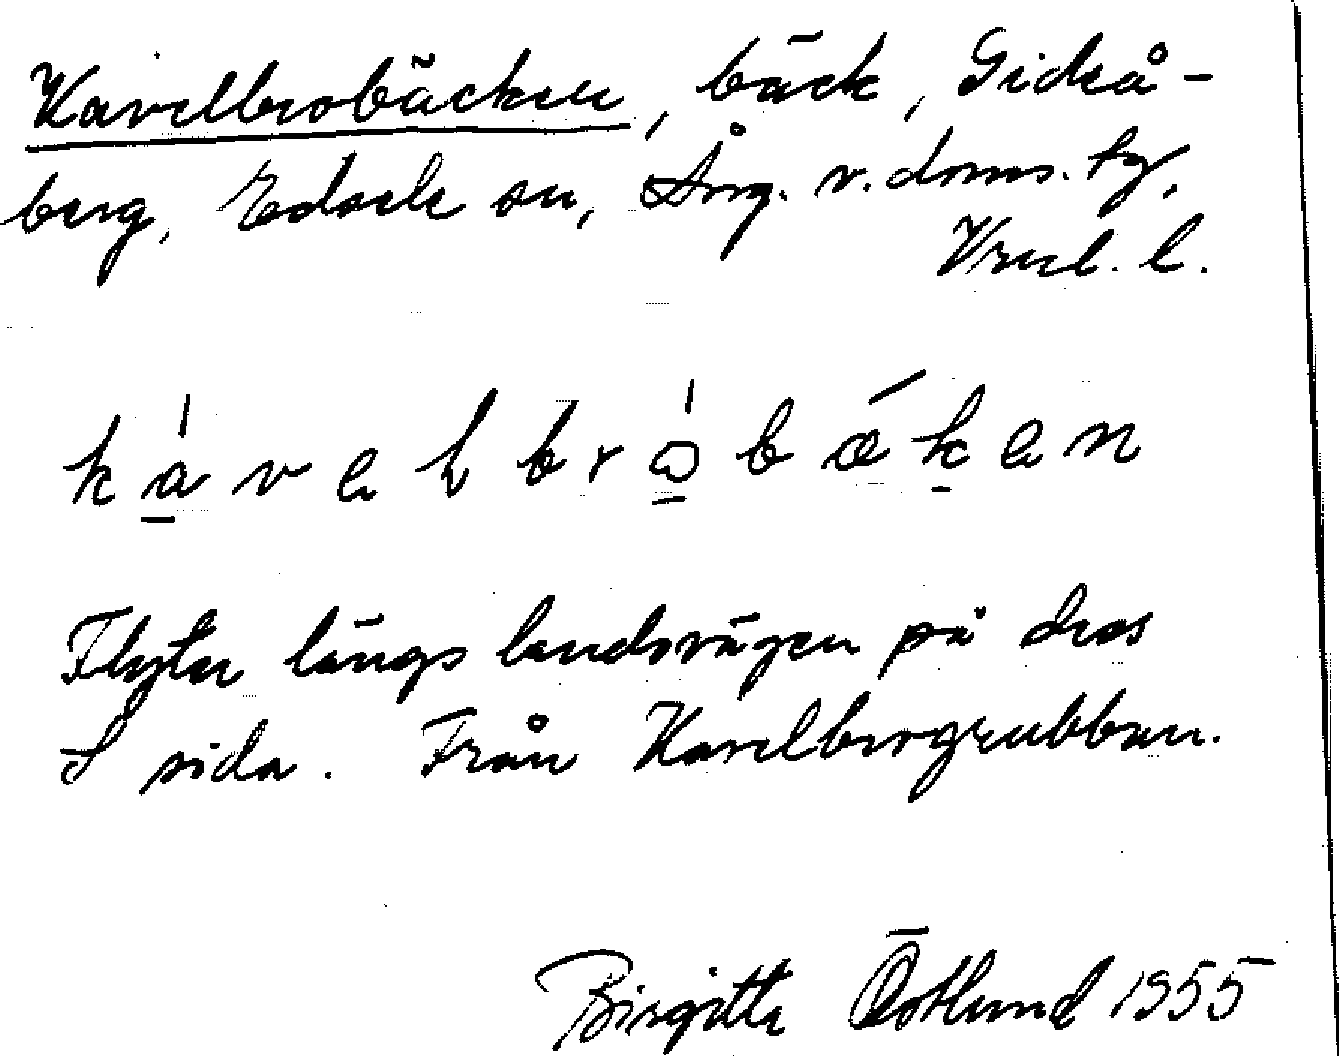 Kavelbrobäcken, bäck, Gideå-
berg, Edsele sn, Ång. v. doms. tg,
Vnl. l.
kavelbrobækan
Flyter längs landsvägen på dess
S sida. Från Kavelbrogrubban.
Birgitta Östlund 1955